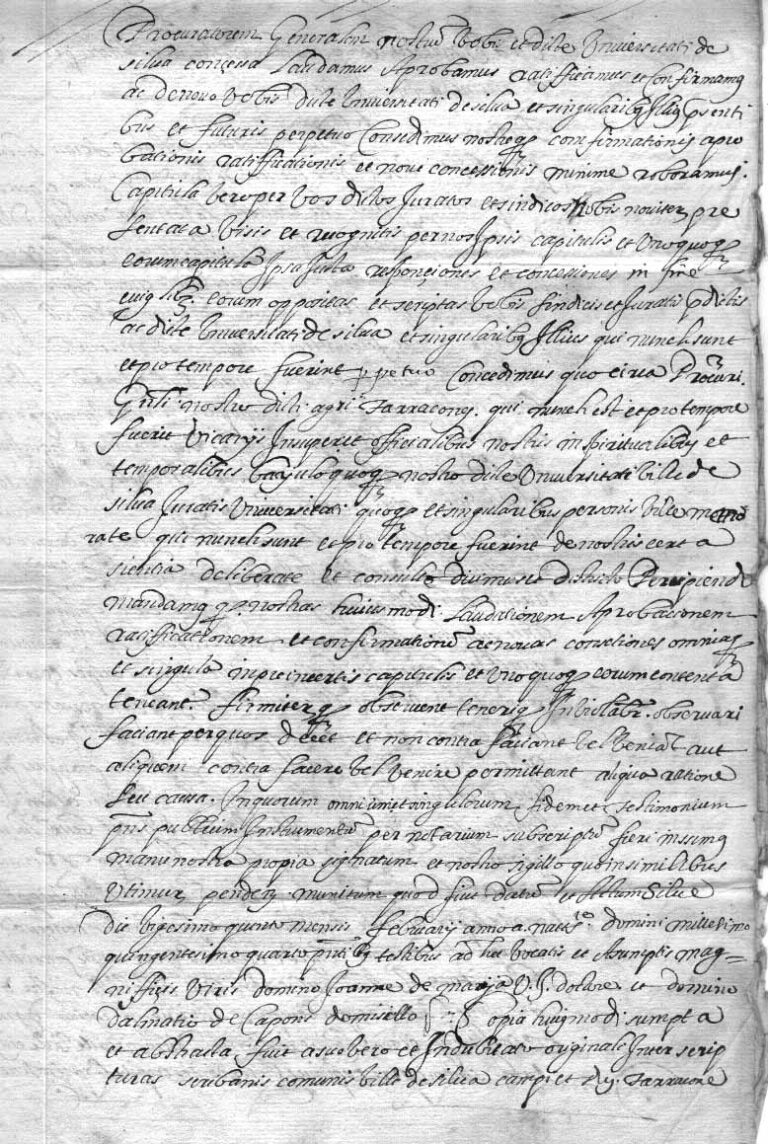 Procuratorem Generalem nostrum Vobis et dicte Universitati de
silva concessa Laudamus Aprobamus ratifficamus et confirmamq
ac denovo Vobis dicte Universitati de silva et singularibq psenti
bus et futuris perpetuo Consedimus nostreq confirmationis apro
bationis ratifficationis et nove concessionis minime roboramus.
Capitula vero per Vos dictos Juratos et sindicos Nobis noviter pre
sentata Visis et recognitis per nos Ipsis capitulis et Unoquoq
eorum capitulo Ipsa Juxta responçiones et concessiones in fine
eorum oppositas et scriptas Vobis sindicis et Juratis pdictis
ac dicte Universitati de silva et singularibq Illius qui nunch sunt
et pro tempore fuerint ppetuo Concedimus quo circa Procuri.
Gnli nostro dicti agri Tarracone. qui nunch est et pro tempore
fuerit Vicariis Insuper et officialibus nostris in spiritualibus et
temporalibus bajuloquoq nostro dicte Universitati Ville de
silva Juratis Universitati quoq et singularibus personis Ville memo
rate qui nunch sunt et pro tempore fuerint de nostris certa
sientia deliberate et consulte
mandamq q. nostras huiusmodi Laudationem Aprobationem
ratifficationem et confirmationem ac novas concesiones omniaq
et singula in preincertis capitulis et Unoquoq eorum contenta
teneant. firmiterq observent teneriq Inviolabr. observari
faciant per quos deceet et non contra faciant vel Veniat aut
aliquem contra facere vel Venire permittant aliqua ratione
seu causa. In quorum omnium et singulorum fidem et testimonium
pns publicum Instrumentum per notarium subscriptum fieri iussimq
manu nostra propia signatum et nostro sigillo quo in similibus
Utimur pendeti munitum quod fuit datum et Actum Silve
die Vigesimo quinto mensis febuarii anno a natte domini millesimo
quengentesimo quarto pntibq testibus ad hec vocatis et Asumptis mag-
nifficis Viris domino Joanne de Marja V. J. dotore et domino
dalmatio de Capons domisello Copia huiqmodi sumpta
et abstracta fuit a suo vero et Indubitato originali Inter scrip
turas scribanis comunis Ville de silva campi et Tarracone